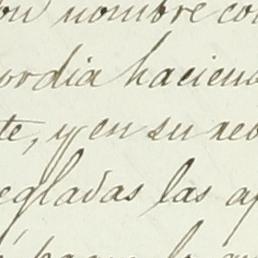 con nombre con
cordia haciend
te, y en su reo
regladas las ap